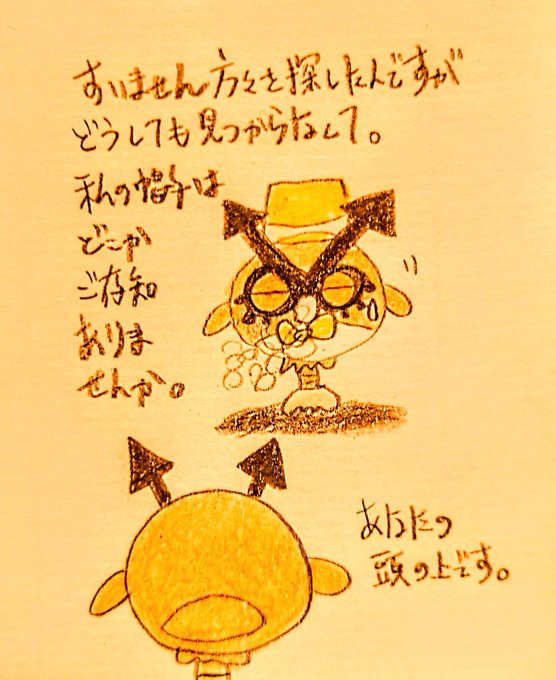 すいません方々を探したんですが
どうしても見つからなくて。
私の帽子は
どこか
ご存知
ありま
せんか。
あなたの
頭の上です。